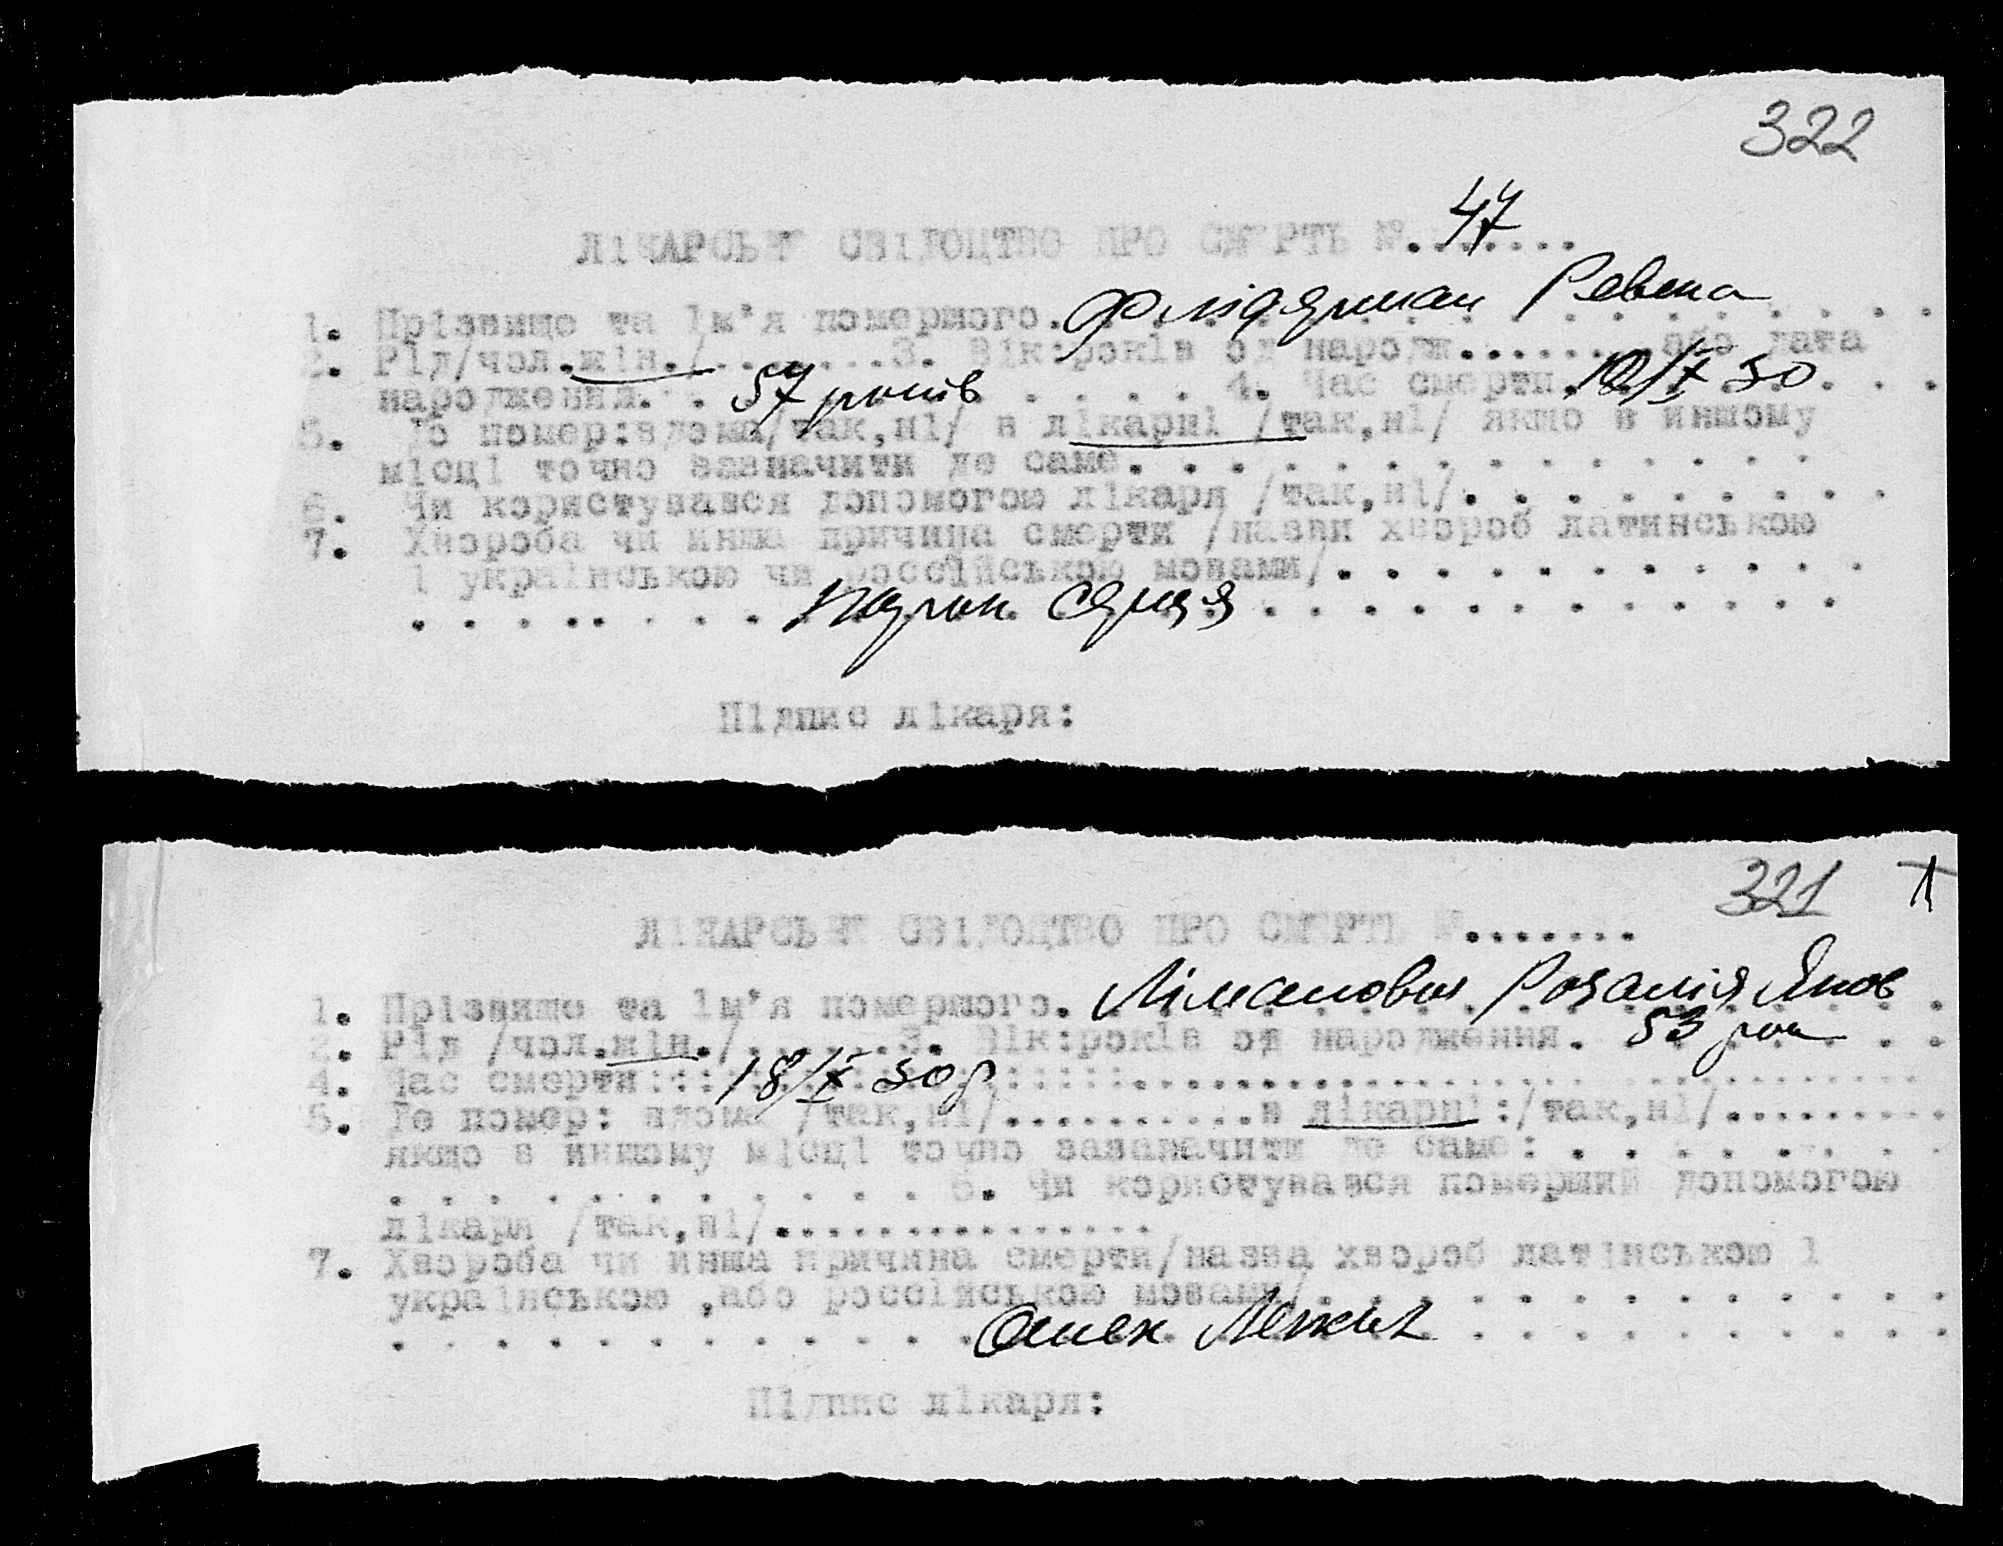 322
ЛІКАРСЬКЕ СВІДОЦТВО ПРО СМЕРТЬ №. 47 .....
1. Прізвище та ім'я помершого. Флідерман Ревека
2. Рід/чол.жін./.......3. Вік:років од народж....... або дата
народження. . 57 років . . . . 4. Час смерти. 18/IX 30 . . .
5. Де помер:вдома/так,ні/ в лікарні /так,ні/ якщо в иншому
місці точно зазначити де саме. . . . . . . . . . . . . .
6. Чи користувався допомогою лікаря /так,ні/. . . . . . . . .
7. Хвороба чи инша причина смерти /назви хвороб латинською
і українською чи россійською мовами/. . . . . . . . . . .
. . . . . . . . . серця . . . . . . . . . . . .
Підпис лікаря:
321
ЛІКАРСЬКЕ СВІДОЦТВО ПРО СМЕРТЬ №.......
1. Прізвище та ім'я помершого. Розалія Яков
2. Рід /чол.жін./......3. Вік:років од народження. 53 рок . . .
4. Час смерти:::: 18/IX 30 р ::::::..................
5. Де помер: вдома /так,ні/..........в лікарні:/так,ні/.........
якщо в иншому місці точно зазначити де саме: . . . . . . . .
. . . . . . . . . . . 6. Чи користувався померший допомогою
лікаря /так,ні/...............
7. Хвороба чи инша причина смерти/назва хвороб латінською і
українською ,або россійською мовами/. . . . . . . . . . . . .
. . . . . . . . . . . Отек Легких . . . . . . . . . .
Підпис лікаря: